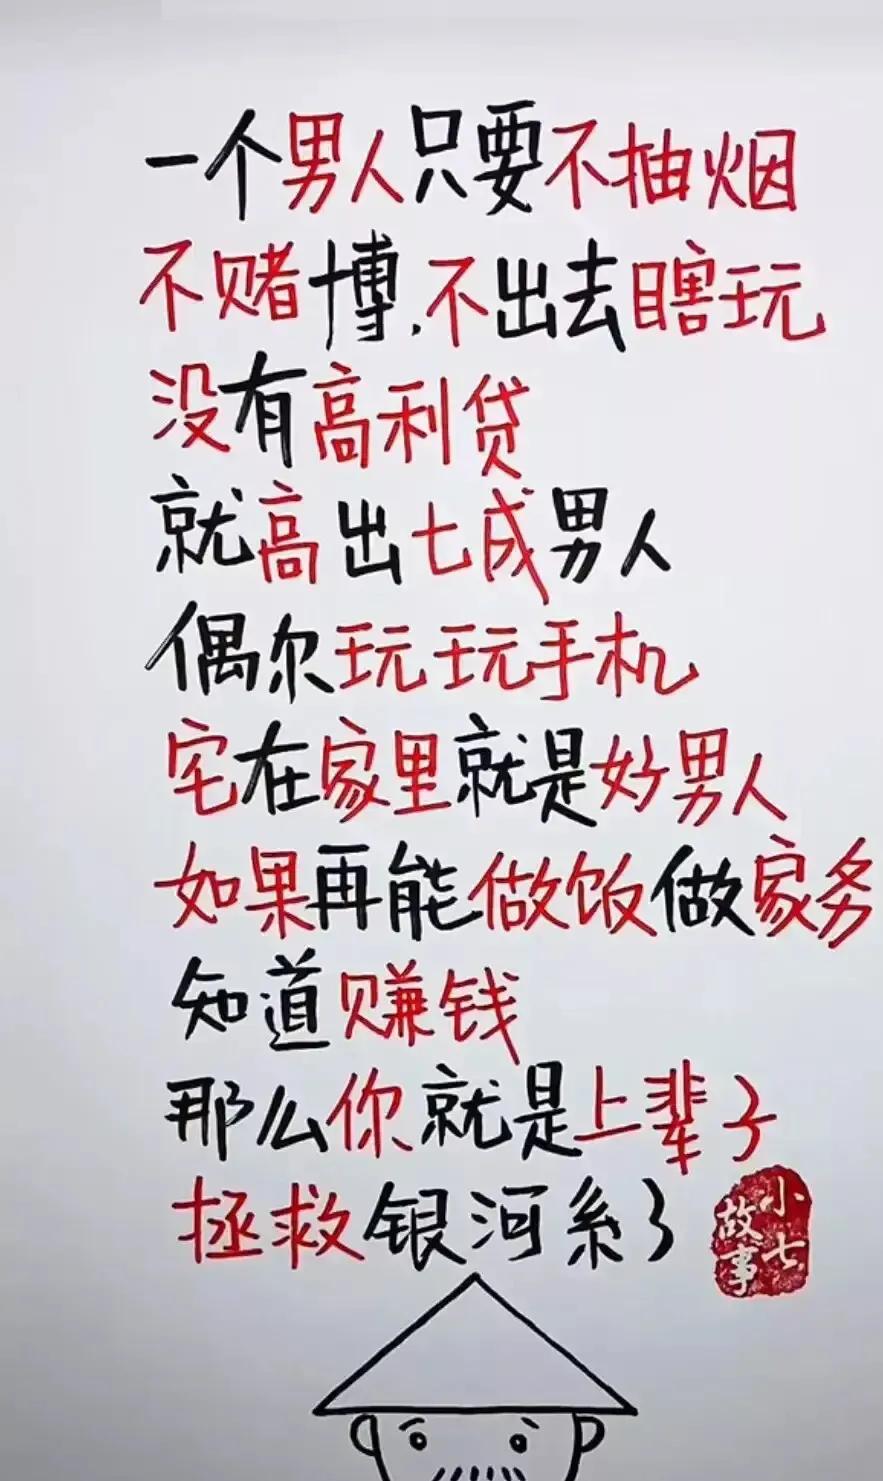 一个男人只要不抽烟
不赌博,不出去瞎玩
没有高利贷
就高出七成男人
偶尔玩玩手机
宅在家里就是好男人
如果再能做饭做家务
知道赚钱
那么你就是上辈子
拯救银河系了
小七
故事